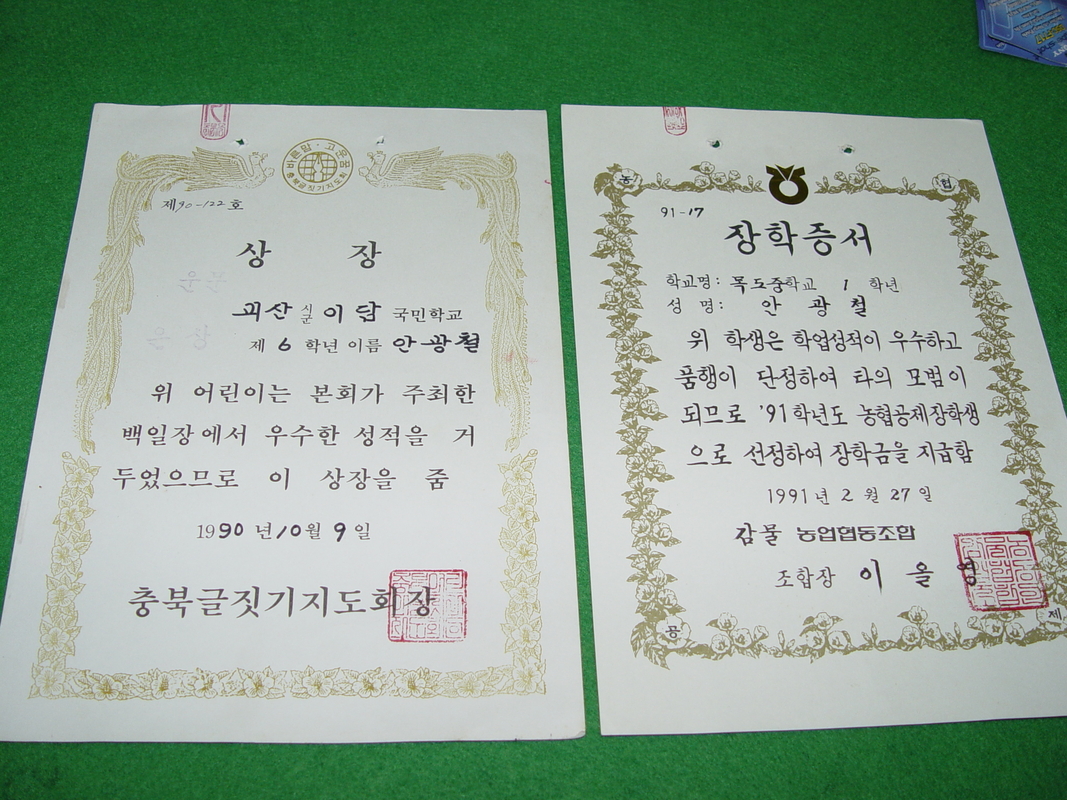 바른말·고운글
충북글짓기지도회
제90-122호
상 장
괴산 시 군 이담 국민학교
제 6 학년 이름 안광철
위 어린이는 본회가 주최한
백일장에서 우수한 성적을 거
두었으므로 이 상장을 줌
1990년10월 9일
충북글짓기지도회장
농 협
91-17
장학증서
학교명: 목도중학교 1 학년
성 명: 안 광 철
위 학생은 학업성적이 우수하고
품행이 단정하여 타의 모범이
되므로 '91학년도 농협공제장학생
으로 선정하여 장학금을 지급함
1991년 2월 27일
감물 농업협동조합
조합장 이 을 영
공 제